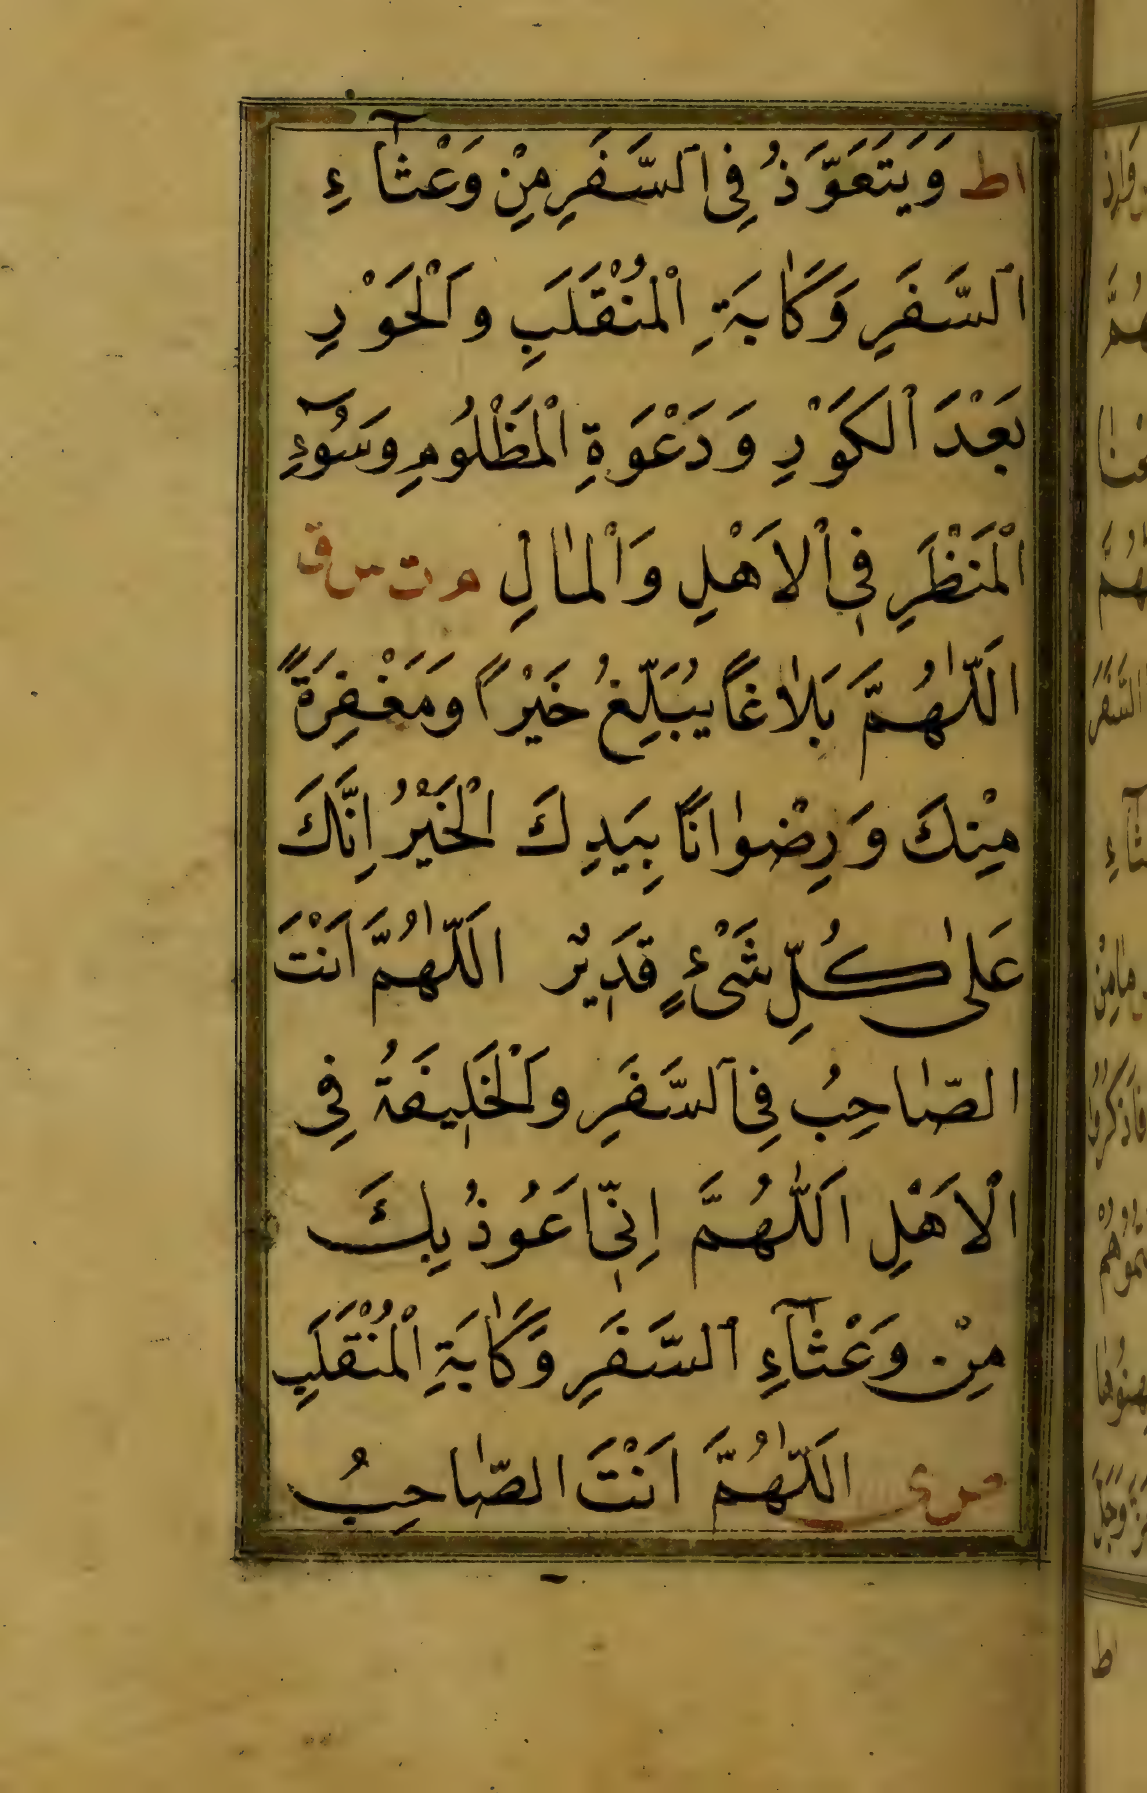 اط وَيَتَعَوَّذُ فِي السَّفَرِ مِنْ وَعْثَآءِ
السَّفَرِ وَكَاٰبَةِ الْمُنْقَلَبِ وَالْحَوْرِ
بَعْدَ الْكَوْرِ وَدَعْوَةِ الْمَظْلُومِ وَسُوٓءِ
الْمَنْظَرِ فِي الْاَهْلِ وَالْمَالِ م ت س ق
اَللّٰهُمَّ بَلَاغًا يُبَلِّغُ خَيْرًا وَمَغْفِرَةً
مِنْكَ وَرِضْوَانًا بِيَدِكَ الْخَيْرُ اِنَّكَ
عَلٰى كُلِّ شَيْءٍ قَدِيْرٌ اَللّٰهُمَّ اَنْتَ
الصَّاحِبُ فِي السَّفَرِ وَالْخَلِيفَةُ فِي
الْاَهْلِ اَللّٰهُمَّ اِنِّي اَعُوذُ بِكَ
مِنْ وَعْثَآءِ السَّفَرِ وَكَاٰبَةِ الْمُنْقَلَبِ
اَللّٰهُمَّ اَنْتَ الصَّاحِبُ
اط